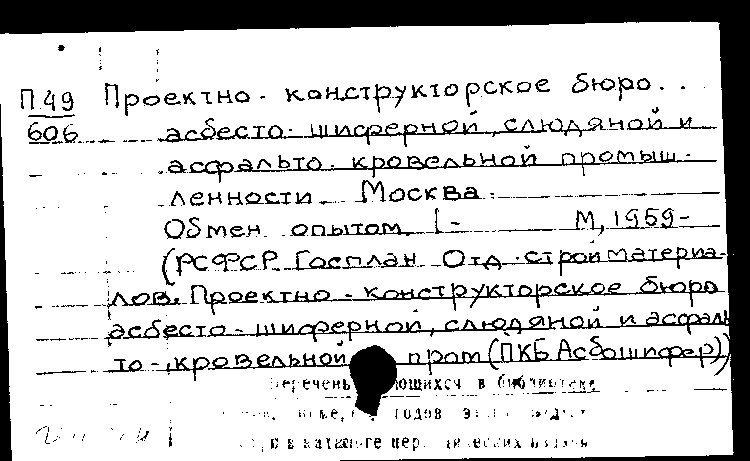 П49 Проектно-конструкторское бюро..
606 асбесто-шиферной, слюдяной и
асфальто-кровельной промыш-
ленности. Москва.
Обмен опытом. 1- М, 1959-
(РСФСР. Госплан Отд. стройматериа-
лов. Проектно-конструкторское бюро
асбесто-шиферной, слюдяной и асфаль
то-, кровельной пром (ПКБ Асбошифер))
в библиотеке
годов
в каталоге